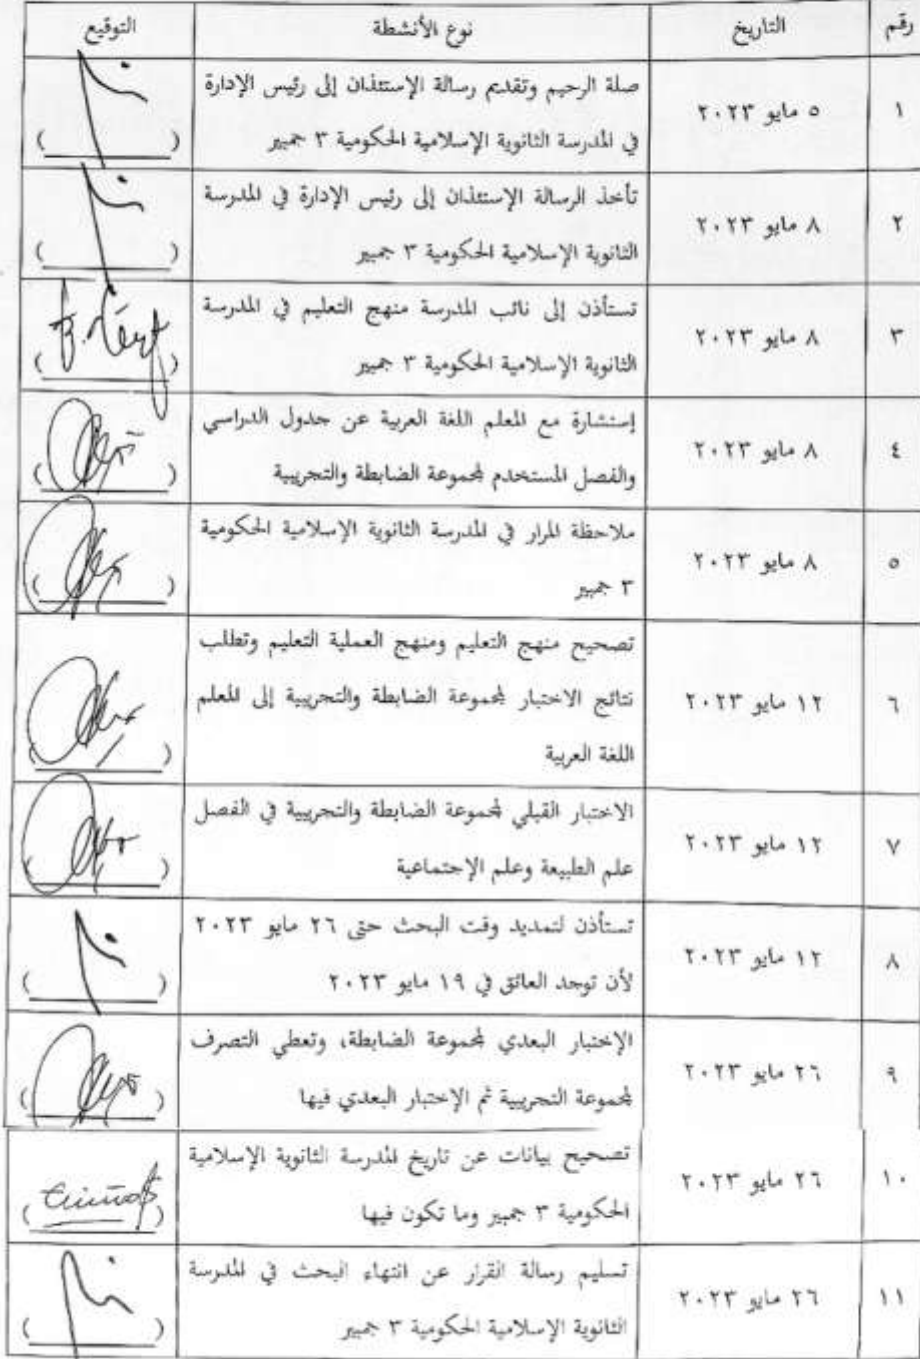 رقم التاريخ نوع الأنشطة التوقيع
١ ٥ مايو ٢٠٢٣ صلة الرحيم وتقديم رسالة الإستئذان إلى رئيس الإدارة
في المدرسة الثانوية الإسلامية الحكومية ٣ جمبير
٢ ٨ مايو ٢٠٢٣ تأخذ الرسالة الإستئذان إلى رئيس الإدارة في المدرسة
الثانوية الإسلامية الحكومية ٣ جمبير
٣ ٨ مايو ٢٠٢٣ تستأذن إلى نائب المدرسة منهج التعليم في المدرسة
الثانوية الإسلامية الحكومية ٣ جمبير
٤ ٨ مايو ٢٠٢٣ إستشارة مع المعلم اللغة العربية عن جدول الدراسي
والفصل المستخدم لمجموعة الضابطة والتجريبية
٥ ٨ مايو ٢٠٢٣ ملاحظة المرار في المدرسة الثانوية الإسلامية الحكومية
٣ جمبير
٦ ١٢ مايو ٢٠٢٣ تصحيح منهج التعليم ومنهج العملية التعليم وتطلب
نتائج الاختبار لمجموعة الضابطة والتجريبية إلى المعلم
اللغة العربية
٧ ١٢ مايو ٢٠٢٣ الاختبار القبلي لمجموعة الضابطة والتجريبية في الفصل
علم الطبيعة وعلم الإجتماعية
٨ ١٢ مايو ٢٠٢٣ تستأذن لتمديد وقت البحث حتى ٢٦ مايو ٢٠٢٣
لأن توجد العائق في ١٩ مايو ٢٠٢٣
٩ ٢٦ مايو ٢٠٢٣ الإختبار البعدي لمجموعة الضابطة، وتعطي التصرف
لمجموعة التجريبية ثم الإختبار البعدي فيها
١٠ ٢٦ مايو ٢٠٢٣ تصحيح بيانات عن تاريخ المدرسة الثانوية الإسلامية
الحكومية ٣ جمبير وما تكون فيها
١١ ٢٦ مايو ٢٠٢٣ تسليم رسالة القرار عن انتهاء البحث في المدرسة
الثانوية الإسلامية الحكومية ٣ جمبير